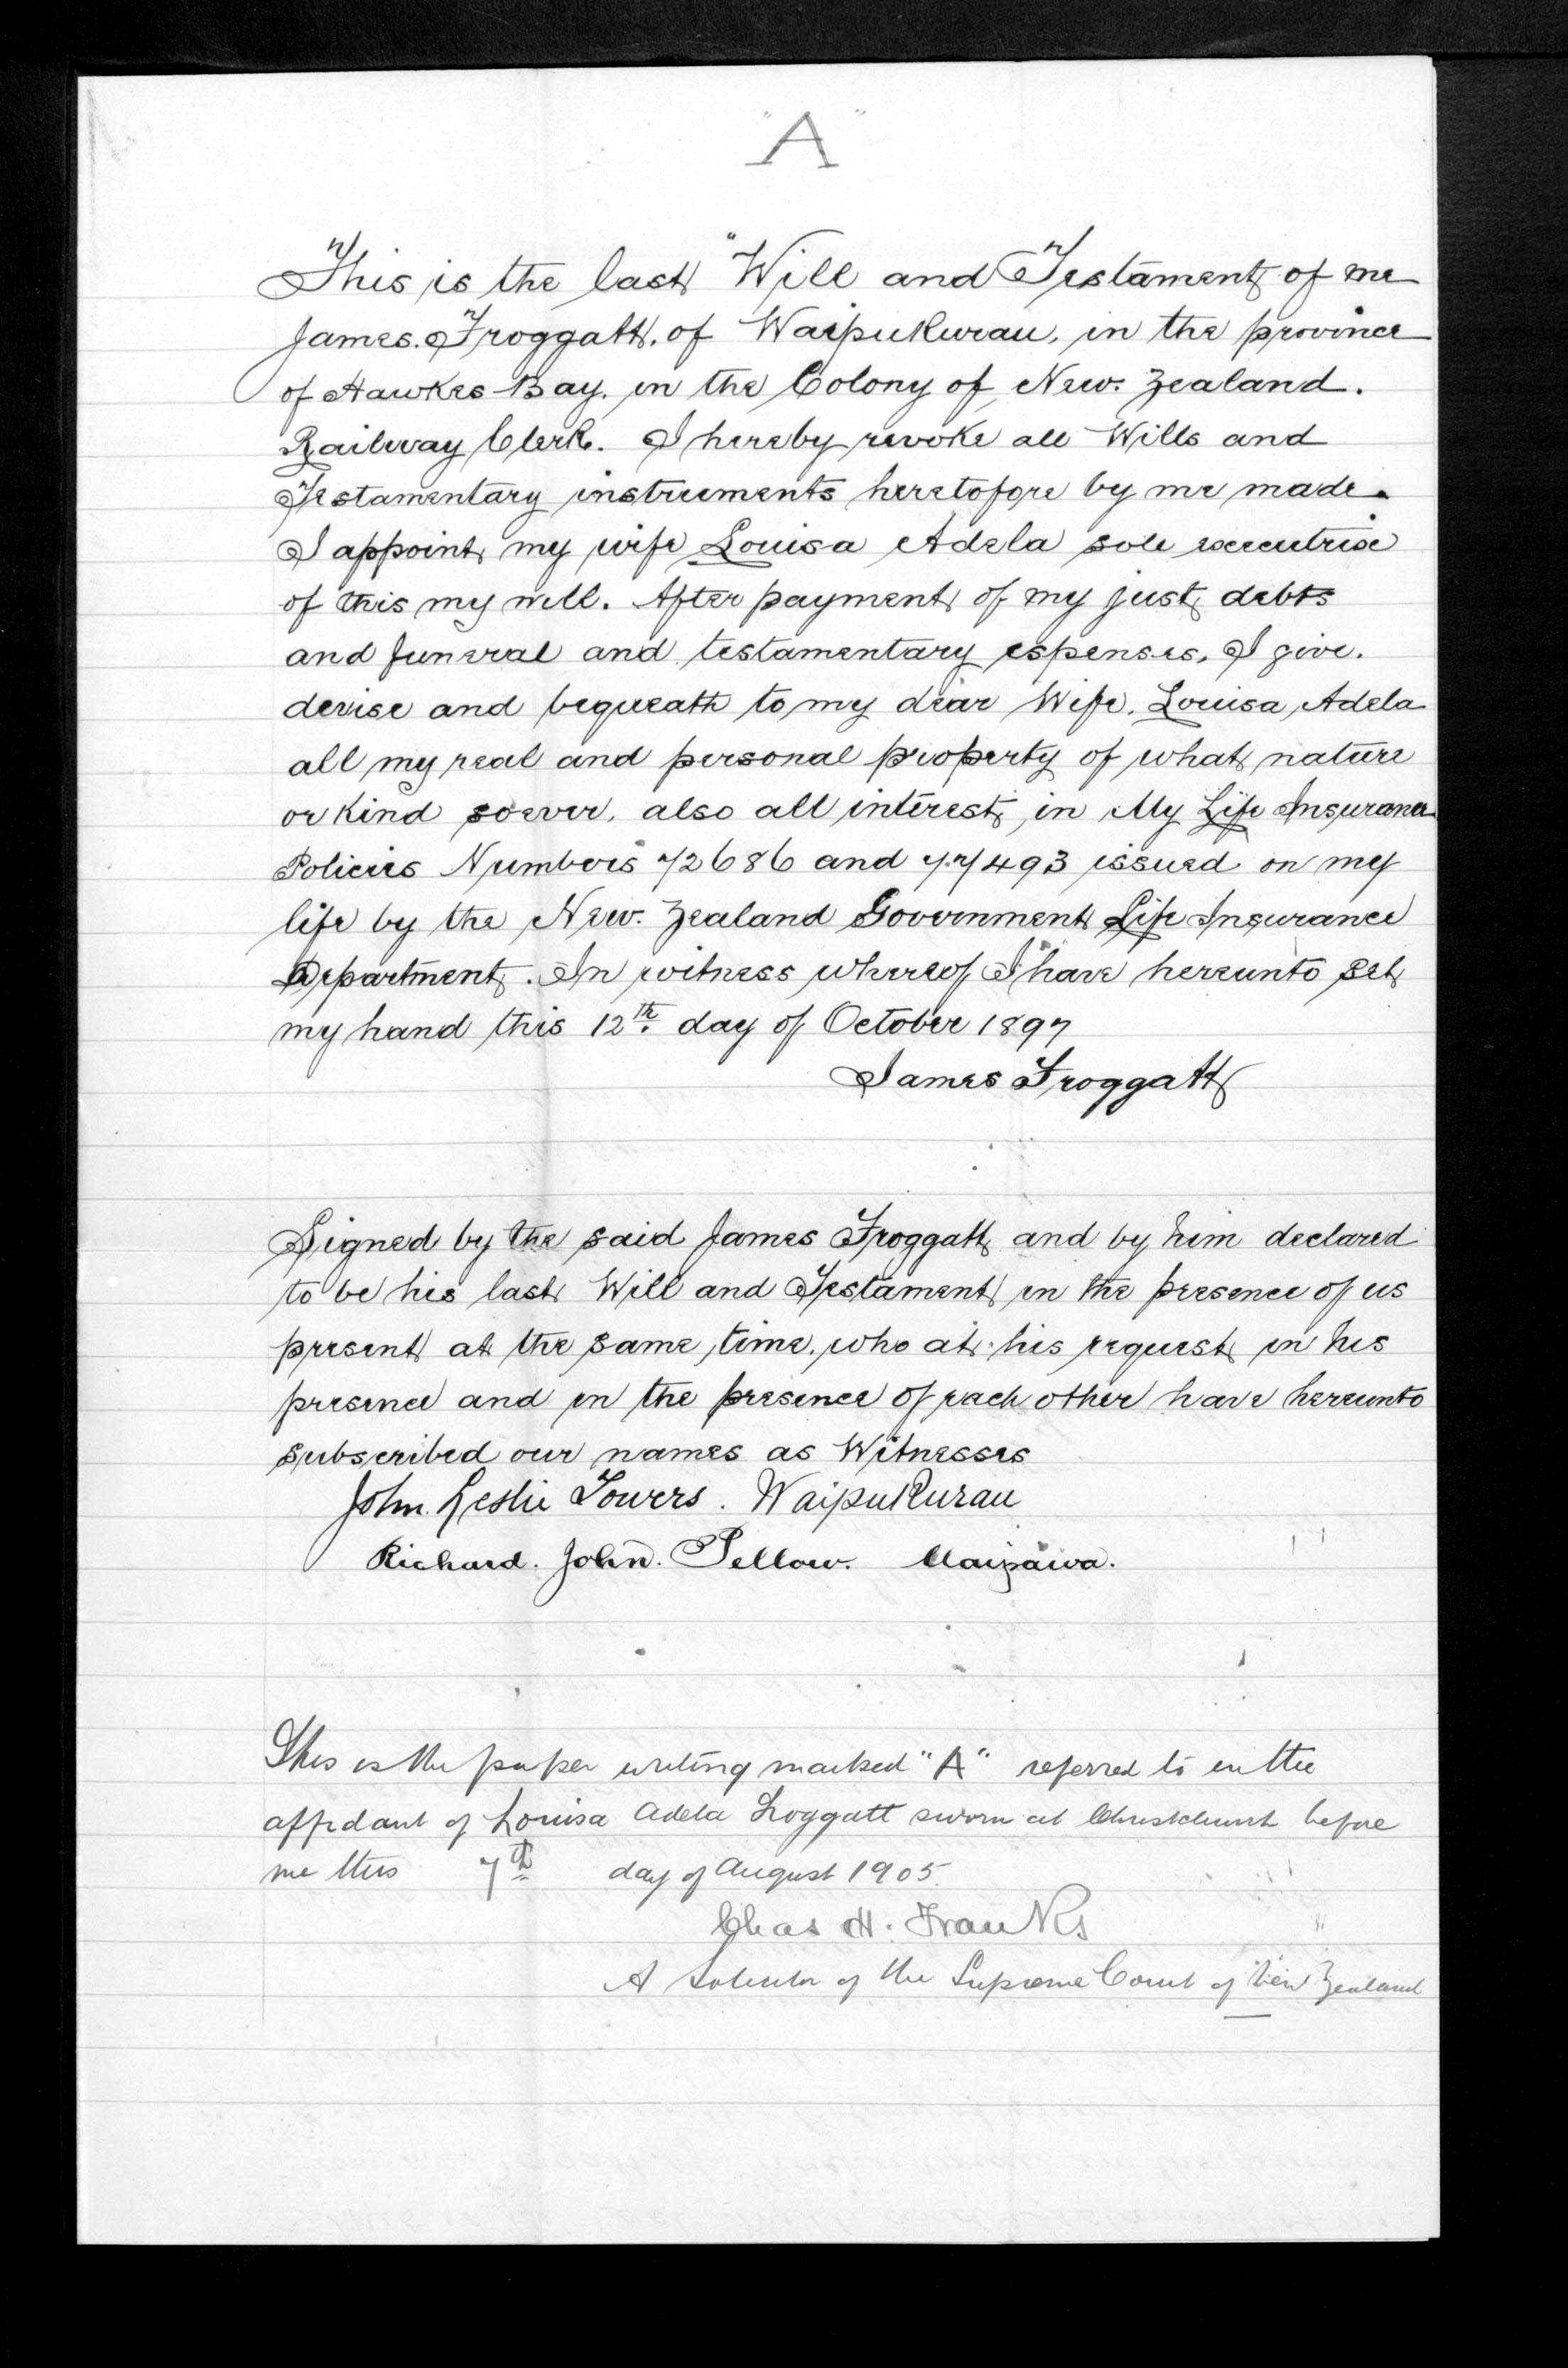 "A"
This is the last Will and Testament of me
James. Froggatt. of Waipukurau. in the province
of Hawkes Bay. in the Colony of New. Zealand.
Railway Clerk. I hereby revoke all Wills and
Testamentary instruments heretofore by me made.
I appoint my wife Louisa Adela sole executrix
of this my will. After payment of my just debts
and funeral and testamentary espenses, I give.
devise and bequeath to my dear Wife. Louisa Adela
all my real and personal property of what nature
or kind soever. also all interest in My Life Insurance
Policies Numbers 72686 and 77493 issued on my
life by the New. Zealand Government Life Insurance
Department. In witness whereof I have hereunto set
my hand this 12th. day of October 1897
James Froggatt
Signed by the said James Froggatt and by him declared
to be his last Will and Testament in the presence of us
present at the same time. who at his request in his
presence and in the presence of each other have hereunto
subscribed our names as Witnesses
John. Leslie Towers. Waipukurau
Richard. John. Pellow. Waipawa.
This is the paper writing marked "A" referred to in the
affidavit of Louisa Adela Froggatt sworn at Christchurch before
me this 7th day of August 1905.
Chas H. Franks
A Solicitor of the Supreme Court of New Zealand